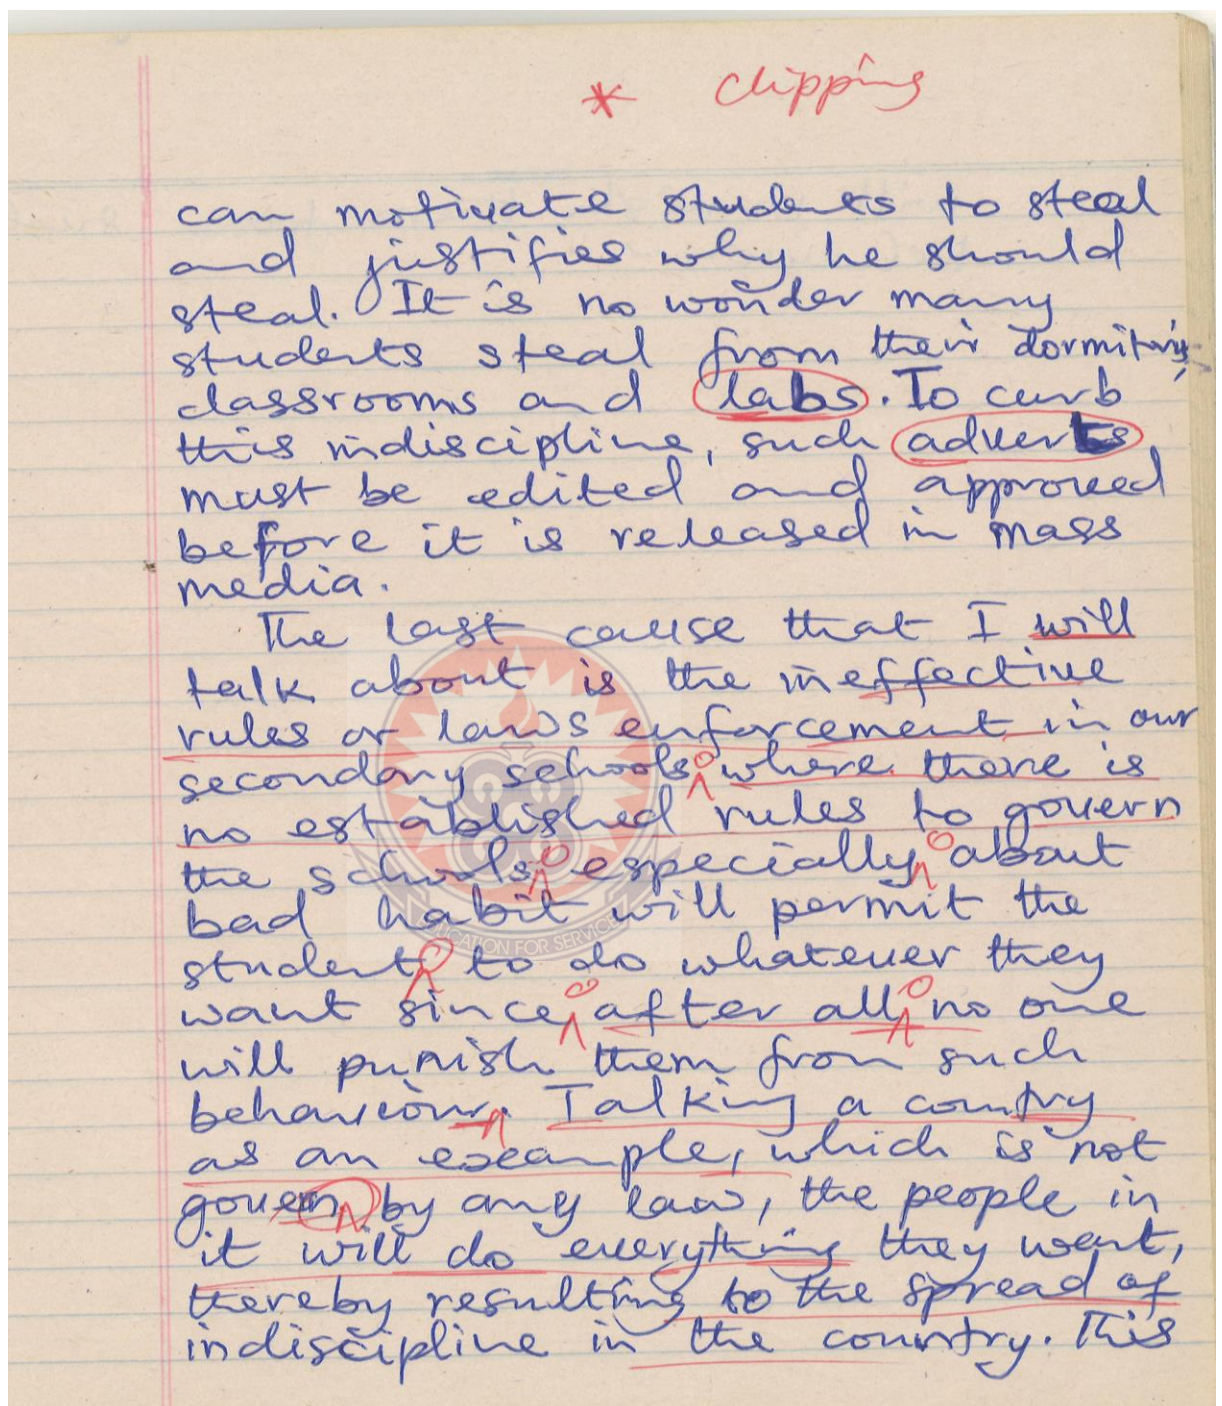 * Clipping
can motivate students to steal
and justifies why he should
steal. It is no wonder many
students steal from their
classrooms and labs. To curb
this indiscipline, such adverts
must be edited and approved
before it is released in mass
media.
The last cause that I will
talk about is the ineffective
rules or laws enforcement in our
secondary schools where there is
no established rules to govern
the schools especially about
bad habit will permit the
student to do whatever they
want since after all no one
will punish them from such
behaviour. Talking a country
as an example, which is not
govern by any law, the people in
it will do everything they want,
thereby resulting to the spread of
indiscipline in the country. This
EDUCATION FOR SERVICE